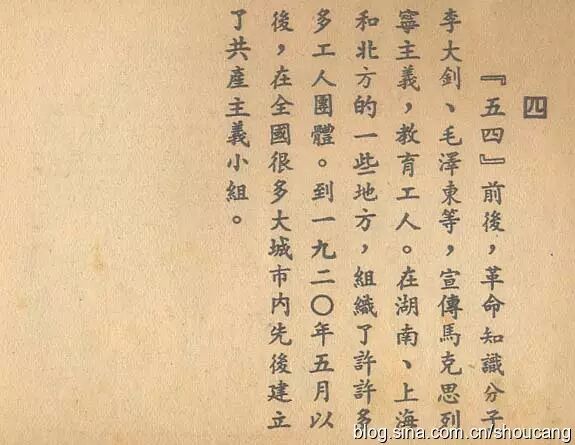 四
『五四』前後，革命知識分子
李大釗、毛澤東等，宣傳馬克思列
寧主義，教育工人。在湖南、上海
和北方的一些地方，組織了許許多
多工人團體。到一九二〇年五月以
後，在全國很多大城市內先後建立
了共產主義小組。
blog.sina.com.cn/shoucang